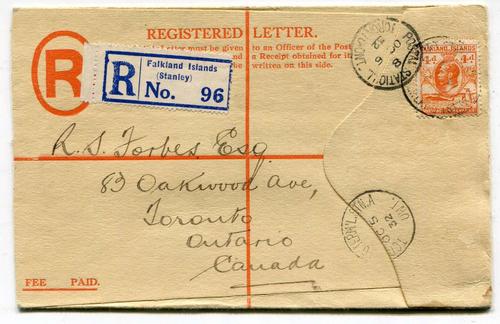 REGISTERED LETTER.
Letter must be given to an Officer of the Post
and a Receipt obtained for it
written on this side.
R
R
Falkland Islands
(Stanley)
No. 96
FALKLAND ISLANDS
4d 4d
R. S. Forbes Esq
83 Oakwood Ave,
Toronto
Ontario
Canada
OC 5
32
ONT.
FEE PAID.